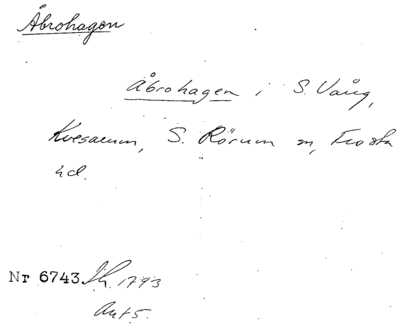 Åbrohagen
Åbrohagen i S. Vång,
Kvesarum, S. Rörum sn, Frosta
hd.
Nr 6743 Sk. 1793
Avt 5.